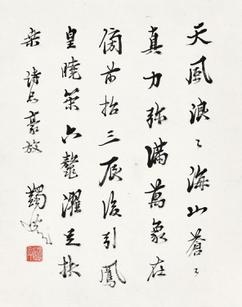 天風浪〻海山蒼〻
真力弥滿萬象在
傍前招三辰後引鳳
皇曉策六鼇濯足扶
桒 詩品豪放 蠲叟